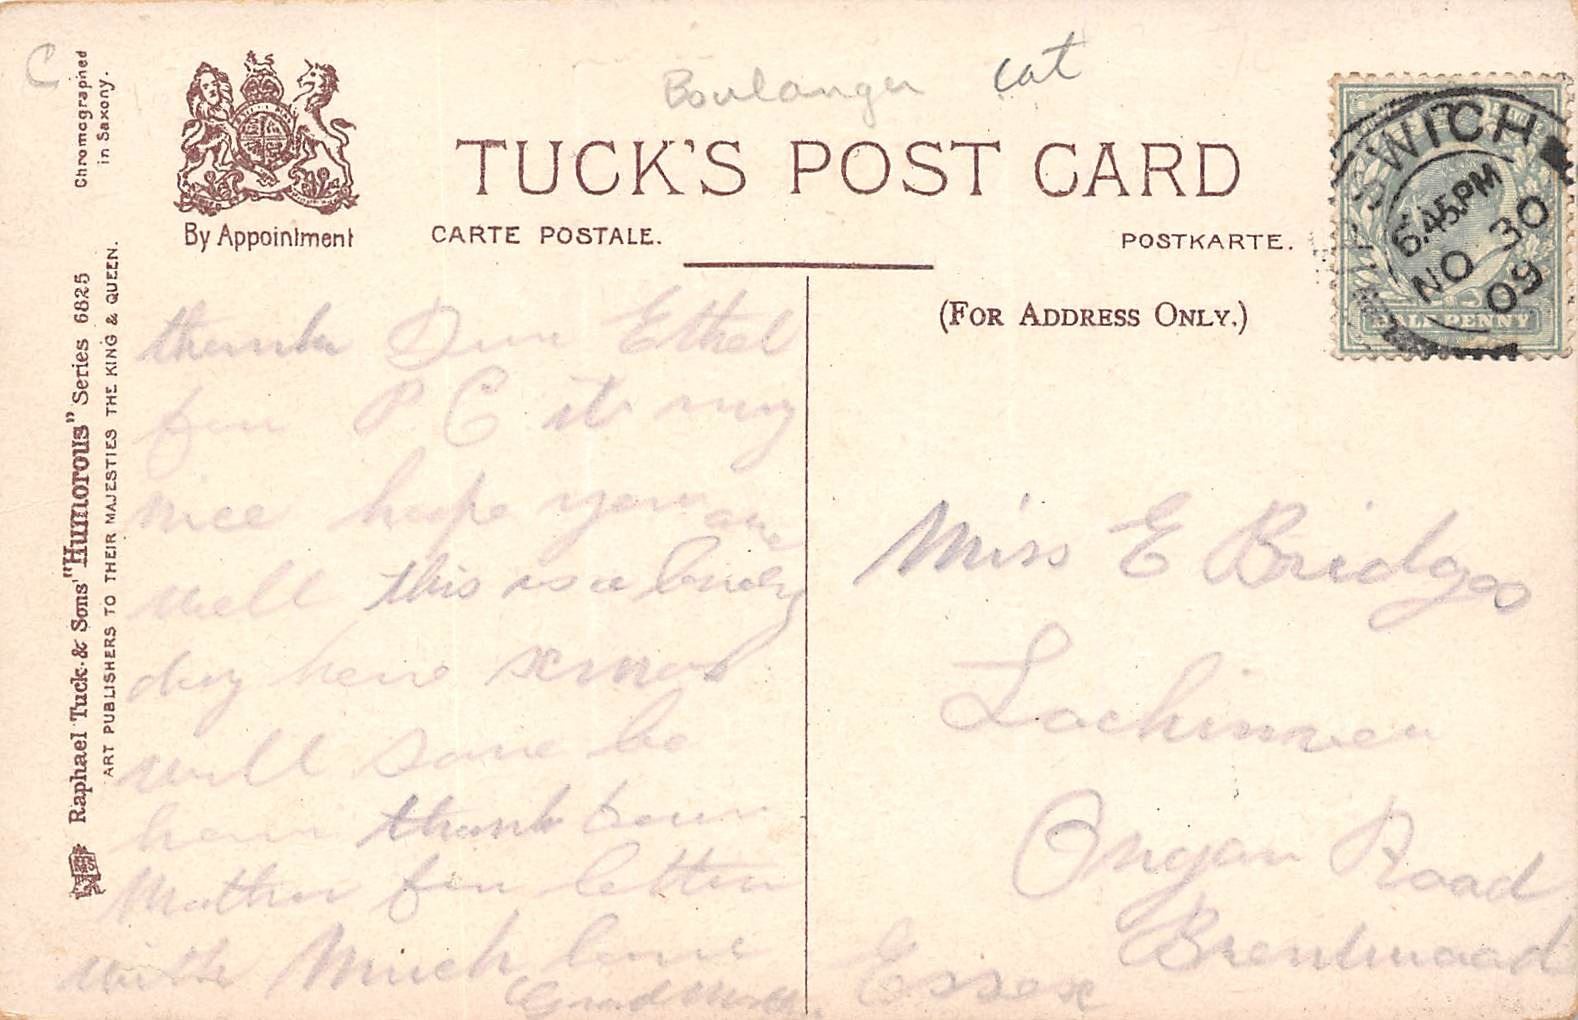 C
Boulanger cat
Chromographed
in Saxony.
By Appointment
TUCK'S POST CARD
CARTE POSTALE.
POSTKARTE.
(FOR ADDRESS ONLY.)
Raphael Tuck & Sons' "Humorous" Series 6825
ART PUBLISHERS TO THEIR MAJESTIES THE KING & QUEEN.
SWICH
6.45.PM
NO 30
09
HALF PENNY
thanks Dear Ethel
for P C it very
nice hope you are
well this is a lovely
day here
will soon be
here thank your
Mother for letter
with Much love
Grand Mother
Miss E Bridges
Lochinvar
Ongar Road
Brentwood
Essex